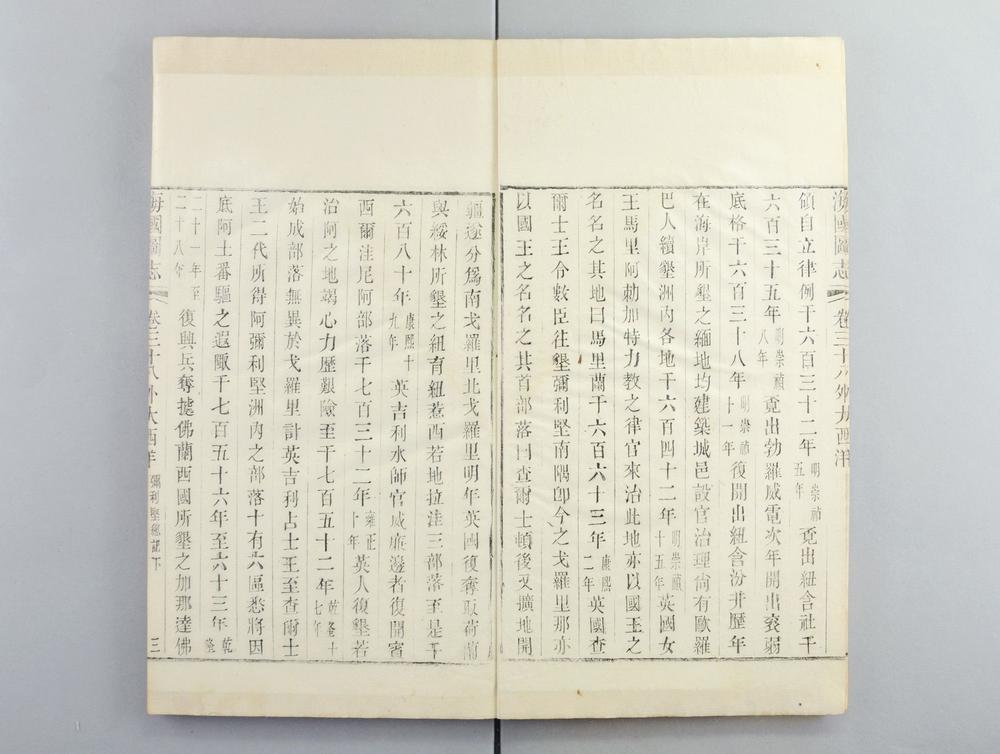 海國圖志 卷三十八 外大西洋
碩自立律例千六百三十二年明崇禎五年覓出紐含社千
六百三十五年明崇禎八年覓出勃羅威電次年開出衮弱
底格千六百三十八年明崇禎十一年復開出紐含汾并歷年
在海岸所墾之緬地均建築城邑設官治理尙有歐羅
巴人續墾洲內各地千六百四十二年明崇禎十五年英國女
王馬里阿勅加特力教之律官來治此地亦以國王之
名名之其地曰馬里蘭千六百六十三年康熙二年英國查
爾士王令數臣往墾彌利堅南隅卽今之戈羅里那亦
以國王之名名之其首部落曰查爾士頓後又擴地開
疆遂分爲南戈羅里北戈羅里明年英國復奪取荷蘭
與綏林所墾之紐育紐惹西若地拉洼三部落至是千
六百八十年康熙十九年英吉利水師官威廉邊者復開賓
西爾洼尼阿部落千七百三十二年雍正十年英人復墾若
治阿之地竭心力歷艱險至千七百五十二年乾隆十七年
始成部落無異於戈羅里計英吉利占士王至查爾士
王二代所得阿彌利堅洲內之部落十有六區悉將因
底阿土番驅之遐陬千七百五十六年至六十三年乾隆
二十一年至二十八年復興兵奪據佛蘭西國所墾之加那達佛
海國圖志 卷三十八 外大西洋 彌利堅總記下 三